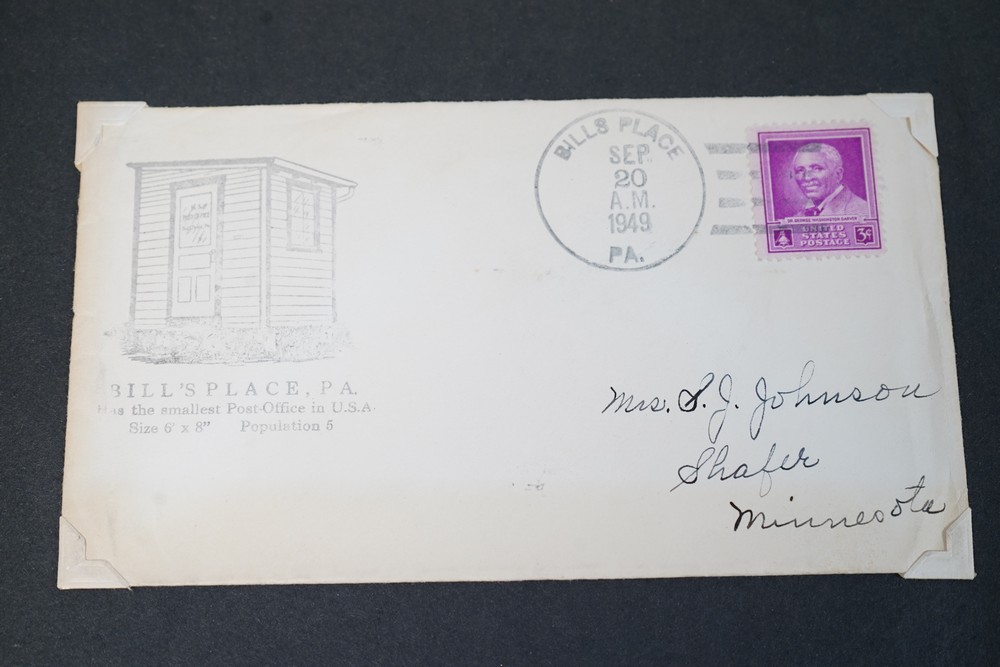 BILLS PLACE
SEP
20
A.M.
1949
PA.
DR. GEORGE WASHINGTON CARVER
UNITED
STATES
POSTAGE
3¢
BILL'S PLACE, PA.
Has the smallest Post-Office in U.S.A.
Size 6' x 8" Population 5
Mrs. S. J. Johnson
Shafer
Minnesota